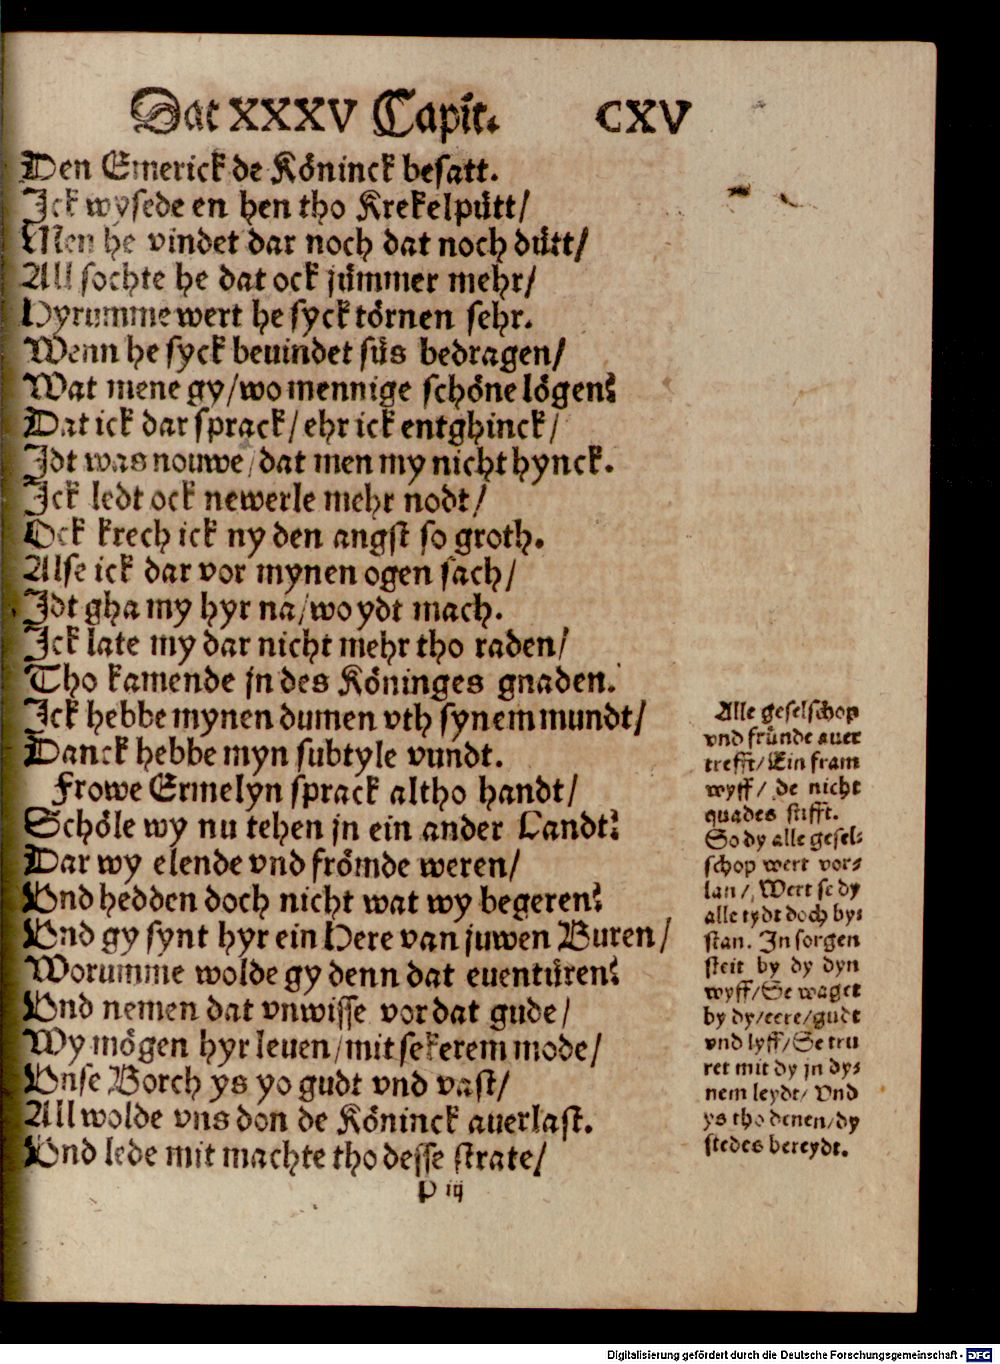 Dat XXXV Capit. CXV
Den Emerick de Köninck besatt.
Ick wysede en hen tho Krekelpütt/
Men he vindet dar noch dat noch dütt/
All sochte he dat ock jümmer mehr/
Hyrumme wert he syck törnen sehr.
Wenn he syck beuindet süs bedragen/
Wat mene gy/wo mennige schöne lögen?
Dat ick dar sprack/ehr ick entghinck/
Idt was nouwe/dat men my nicht hynck.
Ick ledt ock newerle mehr nodt/
Ock krech ick ny den angst so groth.
Alse ick dar vor mynen ogen sach/
Idt gha my hyr na/wo ydt mach.
Ick late my dar nicht mehr tho raden/
Tho kamende jn des Köninges gnaden.
Ick hebbe mynen dumen vth synem mundt/
Danck hebbe myn subtyle vundt.
Frowe Ermelyn sprack altho handt/
Schöle wy nu tehen jn ein ander Landt?
Dar wy elende vnd frömde weren/
Vnd hedden doch nicht wat wy begeren?
Vnd gy synt hyr ein Here van juwen Buren/
Worumme wolde gy denn dat euentüren?
Vnd nemen dat vnwisse vor dat gude/
Wy mögen hyr leuen/mit sekerem mode/
Vnse Borch ys yo gudt vnd vast/
All wolde vns don de Köninck auerlast.
Vnd lede mit machte tho desse strate/
P iij
Alle geselschop
vnd fründe auer
trefft/Ein fram
wyff/ de nicht
quades stifft.
So dy alle gesel-
schop wert vor-
lan/, Wert se dy
alle tydt doch by-
stan. In sorgen
steit by dy dyn
wyff/Se waget
by dy/eere/gudt
vnd lyff/Se tru
ret mit dy jn dy-
nem leydt/ Vnd
ys tho denen/dy
stedes bereydt.
Digitalisierung gefördert durch die Deutsche Forschungsgemeinschaft - DFG